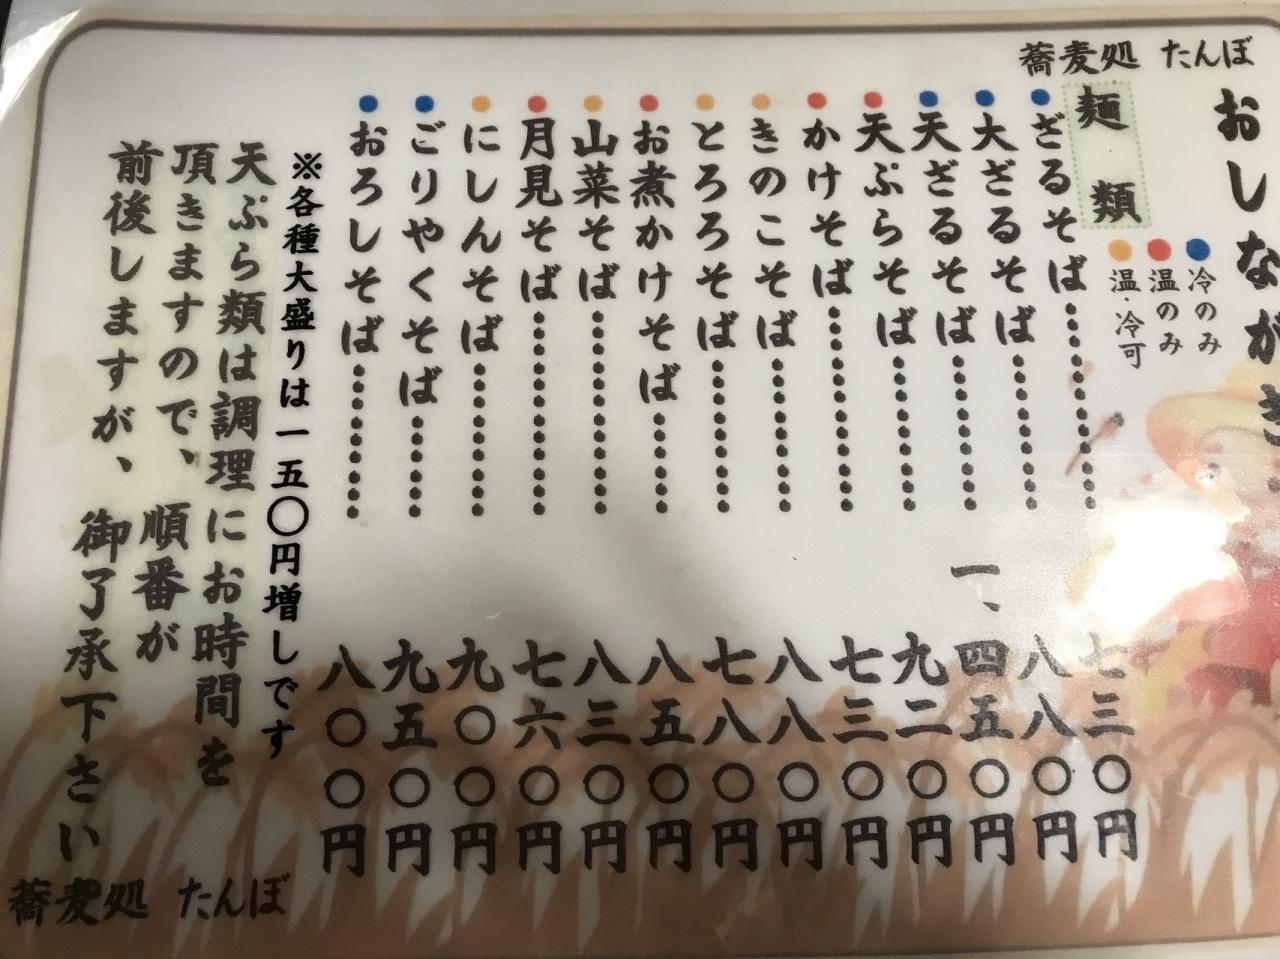 蕎麦処 たんぼ
おしながき
麺類
冷のみ
温のみ
温・冷可
ざるそば………七三〇円
大ざるそば………八八〇円
天ざるそば………一、四五〇円
天ぷらそば………九二〇円
かけそば………七三〇円
きのこそば………八八〇円
とろろそば………七八〇円
お煮かけそば………八五〇円
山菜そば………八三〇円
月見そば………七六〇円
にしんそば………九〇〇円
ごりやくそば………九五〇円
おろしそば………八〇〇円
※各種大盛りは一五〇円増しです
天ぷら類は調理にお時間を
頂きますので、順番が
前後しますが、御了承下さい
蕎麦処 たんぼ